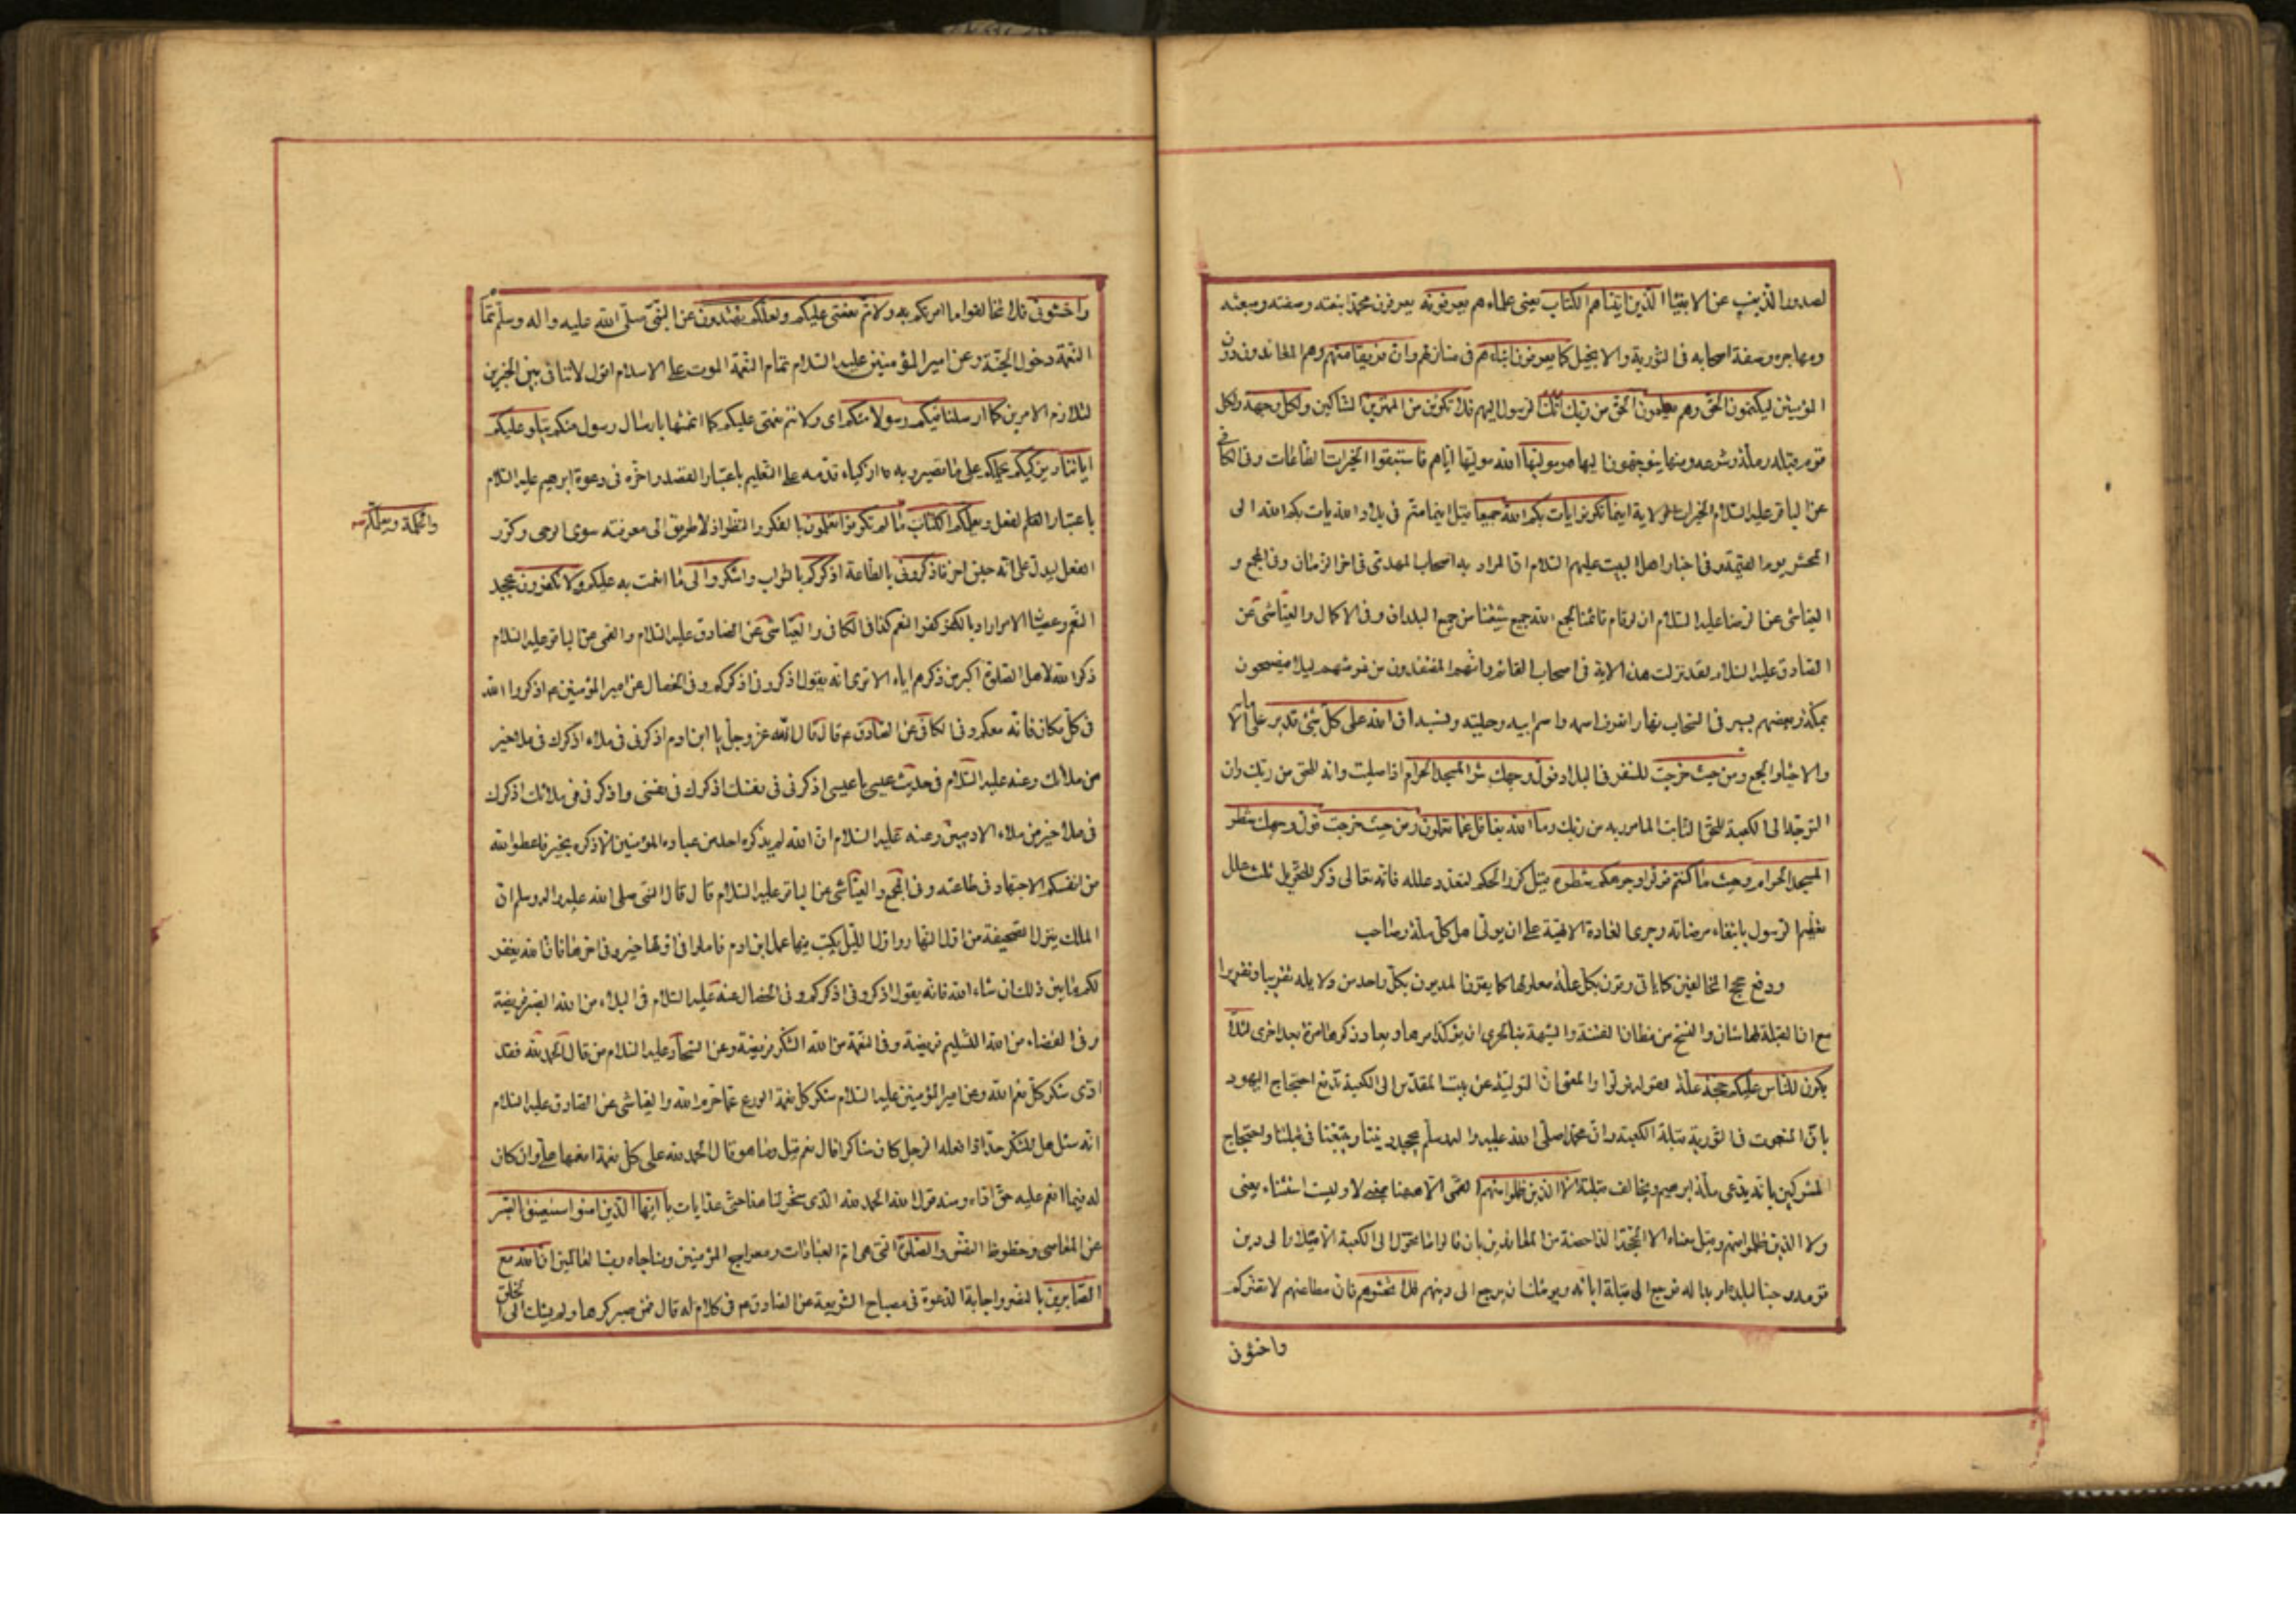 لصدور الذنب عن الانبياء الذين اتيناهم الكتاب يعنى علماءهم يعرفونه يعرفون محمدا بنعته وصفته ومبعثه
ومهاجره وصفة اصحابه فى التورية والانجيل كما يعرفون ابناءهم فى منازلهم وان فريقا منهم وهم المعاندون دون
المؤمنين ليكتمون الحق وهم يعلمون الحق من ربك انك الرسول اليهم فلا تكونن من الممترين الشاكين ولكل وجهة ولكل
قوم قبلة وملة وشرعة ومنهاج يتوجهون اليها هو موليها الله موليها اياهم فاستبقوا الخيرات الطاعات وفى الكافى
عن الباقر عليه السلام الخيرات الولاية اينما تكونوا يات بكم الله جميعا قيل اينما متم فى بلاد الله يات بكم الله الى
المحشر يوم القيمة وفى اخبار اهل البيت عليهم السلام ان المراد به اصحاب المهدى فى اخر الزمان وفى المجمع و
العياشى عن الرضا عليه السلام ان لو قام قائمنا لجمع الله جميع شيعتنا من جميع البلدان وفى الاكمال والعياشى عن
الصادق عليه السلام لقد نزلت هذه الاية فى اصحاب القائم وانهم المفتقدون من فرشهم ليلا فيصبحون
بمكة وبعضهم يسير فى السحاب نهارا نعرف اسمه واسم ابيه وحليته ونسبه ان الله على كل شئ قدير على الاماتة
والاحياء والجمع ومن حيث خرجت للسفر فى البلاد فول وجهك شطر المسجد الحرام اذا صليت وانه للحق من ربك وان
التوجه الى الكعبة للحق الثابت المامور به من ربك وما الله بغافل عما تعملون ومن حيث خرجت فول وجهك شطر
المسجد الحرام وحيث ما كنتم فولوا وجوهكم شطره قيل كرر الحكم لتعدد علله فانه تعالى ذكر للتحويل ثلث علل
تعظيم الرسول بابتغاء مرضاته وجرى العادة الالهية على ان يولى اهل كل ملة وصاحب
ودفع حجج المخالفين كما ياتى وقرن بكل علة معلولها كما يقرن المدلول بكل واحد من دلايله تقريبا وتقريرا
مع ان القبلة لها شان والنسخ من مظان الفتنة والشبهة فبالحرى ان يؤكد امرها ويعاد ذكرها مرة بعد اخرى لئلا
يكون للناس عليكم حجة علة لقوله فولوا والمعنى ان التولية عن بيت المقدس الى الكعبة تدفع احتجاج اليهود
بان المنعوت فى التورية قبلة الكعبة وان محمدا صلى الله عليه واله وسلم يجحد ديننا ويتبعنا فى قبلتنا واحتجاج
المشركين بانه يدعى ملة ابراهيم ويخالف قبلته الا الذين ظلموا منهم القمى الا ههنا بمعنى لا وليست استثناء يعنى
ولا الذين ظلموا منهم وقيل معناه الا الحجة الداحضة من المعاندين بان قالوا ما تحول الى الكعبة الا ميلا الى دين
قومه وحبا لبلده او بدا له فرجع الى قبلة ابائه ويوشك ان يرجع الى دينهم فلا تخشوهم فان مطاعنهم لا تضركم
واخشونى
واخشونى فلا تخالفوا ما امرتكم به ولاتم نعمتى عليكم ولعلكم تهتدون عن النبى صلى الله عليه واله وسلم تمام
النعمة دخول الجنة وعن امير المؤمنين عليه السلام تمام النعمة الموت على الاسلام اقول لا تنافى بين الخبرين
لتلازم الامرين كما ارسلنا فيكم رسولا منكم اى ولاتم نعمتى عليكم كما اتممتها بارسال رسول منكم يتلو عليكم
اياتنا ويزكيكم يحملكم على ما تصيرون به ازكياء قدمه على التعليم باعتبار القصد واخره فى دعوة ابرهيم عليه السلام
باعتبار الفعل ويعلمكم الكتاب ما لم تكونوا تعلمون بالفكر والنظر اذ لا طريق الى معرفته سوى الوحى وكرر
والحكمة ويعلمكم
الفعل ليدل على انه جنس اخر فاذكرونى بالطاعة اذكركم بالثواب واشكروا لى ما انعمت به عليكم ولا تكفرون بجحد
النعم وعصيان الامر اراد بالكفر كفر النعم كذا فى الكافى والعياشى عن الصادق عليه السلام والقمى عن الباقر عليه السلام
ذكر الله لاهل الصلوة اكبر من ذكرهم اياه الا ترى انه يقول اذكرونى اذكركم وفى الخصال عن امير المؤمنين ع اذكروا الله
فى كل مكان فانه معكم وفى الكافى عن الصادق ع قال قال الله عز وجل يا ابن ادم اذكرنى فى ملاء اذكرك فى ملاء خير
من ملائك وعنه عليه السلام فى حديث عيسى يا عيسى اذكرنى فى نفسك اذكرك فى نفسى واذكرنى فى ملائك اذكرك
فى ملاء خير من ملاء الادميين وعنه عليه السلام ان الله لم يذكره احد من عباده المؤمنين الا ذكره بخير فاعطوا الله
من انفسكم الاجتهاد فى طاعته وفى المجمع والعياشى عن الباقر عليه السلام قال قال النبى صلى الله عليه واله وسلم ان
الملك ينزل الصحيفة من اول النهار واول الليل يكتب فيها عمل ابن ادم فاملوا فى اولها خير وفى اخرها فان الله يغفر
لكم ما بين ذلك ان شاء الله فانه يقول اذكرونى اذكركم وفى الخصال عنه عليه السلام فى البلاء من الله الصبر فريضة
وفى القضاء من الله التسليم فريضة وفى النعمة من الله الشكر فريضة وعن السجاد عليه السلام من قال الحمد لله فقد
ادى شكر كل نعم الله وعن امير المؤمنين عليه السلام شكر كل نعمة الورع عما حرم الله والعياشى عن الصادق عليه السلام
انه سئل هل للشكر حد اذا فعله الرجل كان شاكرا قال نعم قيل وما هو قال الحمد لله على كل نعمة انعمها على وان كان
له فيما انعم عليه حق اداه ومنه قول الله الحمد لله الذى سخر لنا هذا حتى عد ايات يا ايها الذين امنوا استعينوا بالصبر
عن المعاصى وحظوظ النفس والصلوة التى هى ام العبادات ومعراج المؤمنين ومناجاه رب العالمين ان الله مع
الصابرين بالنصر واجابة الدعوة فى مصباح الشريعة عن الصادق ع فى كلام له قال فمن صبر كرها ولم يشك الى الخلق